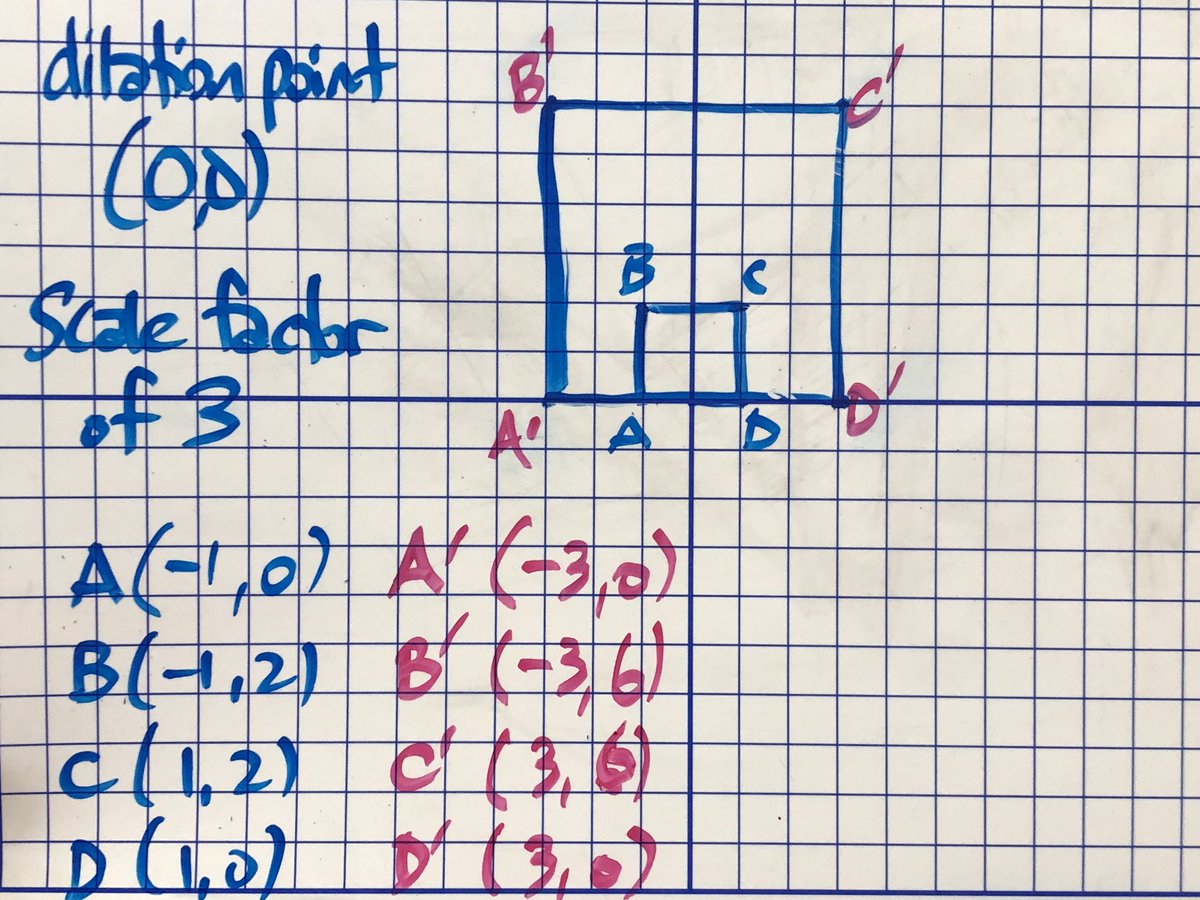 dilation point
(0,0)
Scale factor
of 3
B'
C'
B C
A' A D D'
A(-1,0) A' (-3,0)
B(-1,2) B' (-3,6)
C (1,2) C' (3,6)
D (1,0) D' (3,0)